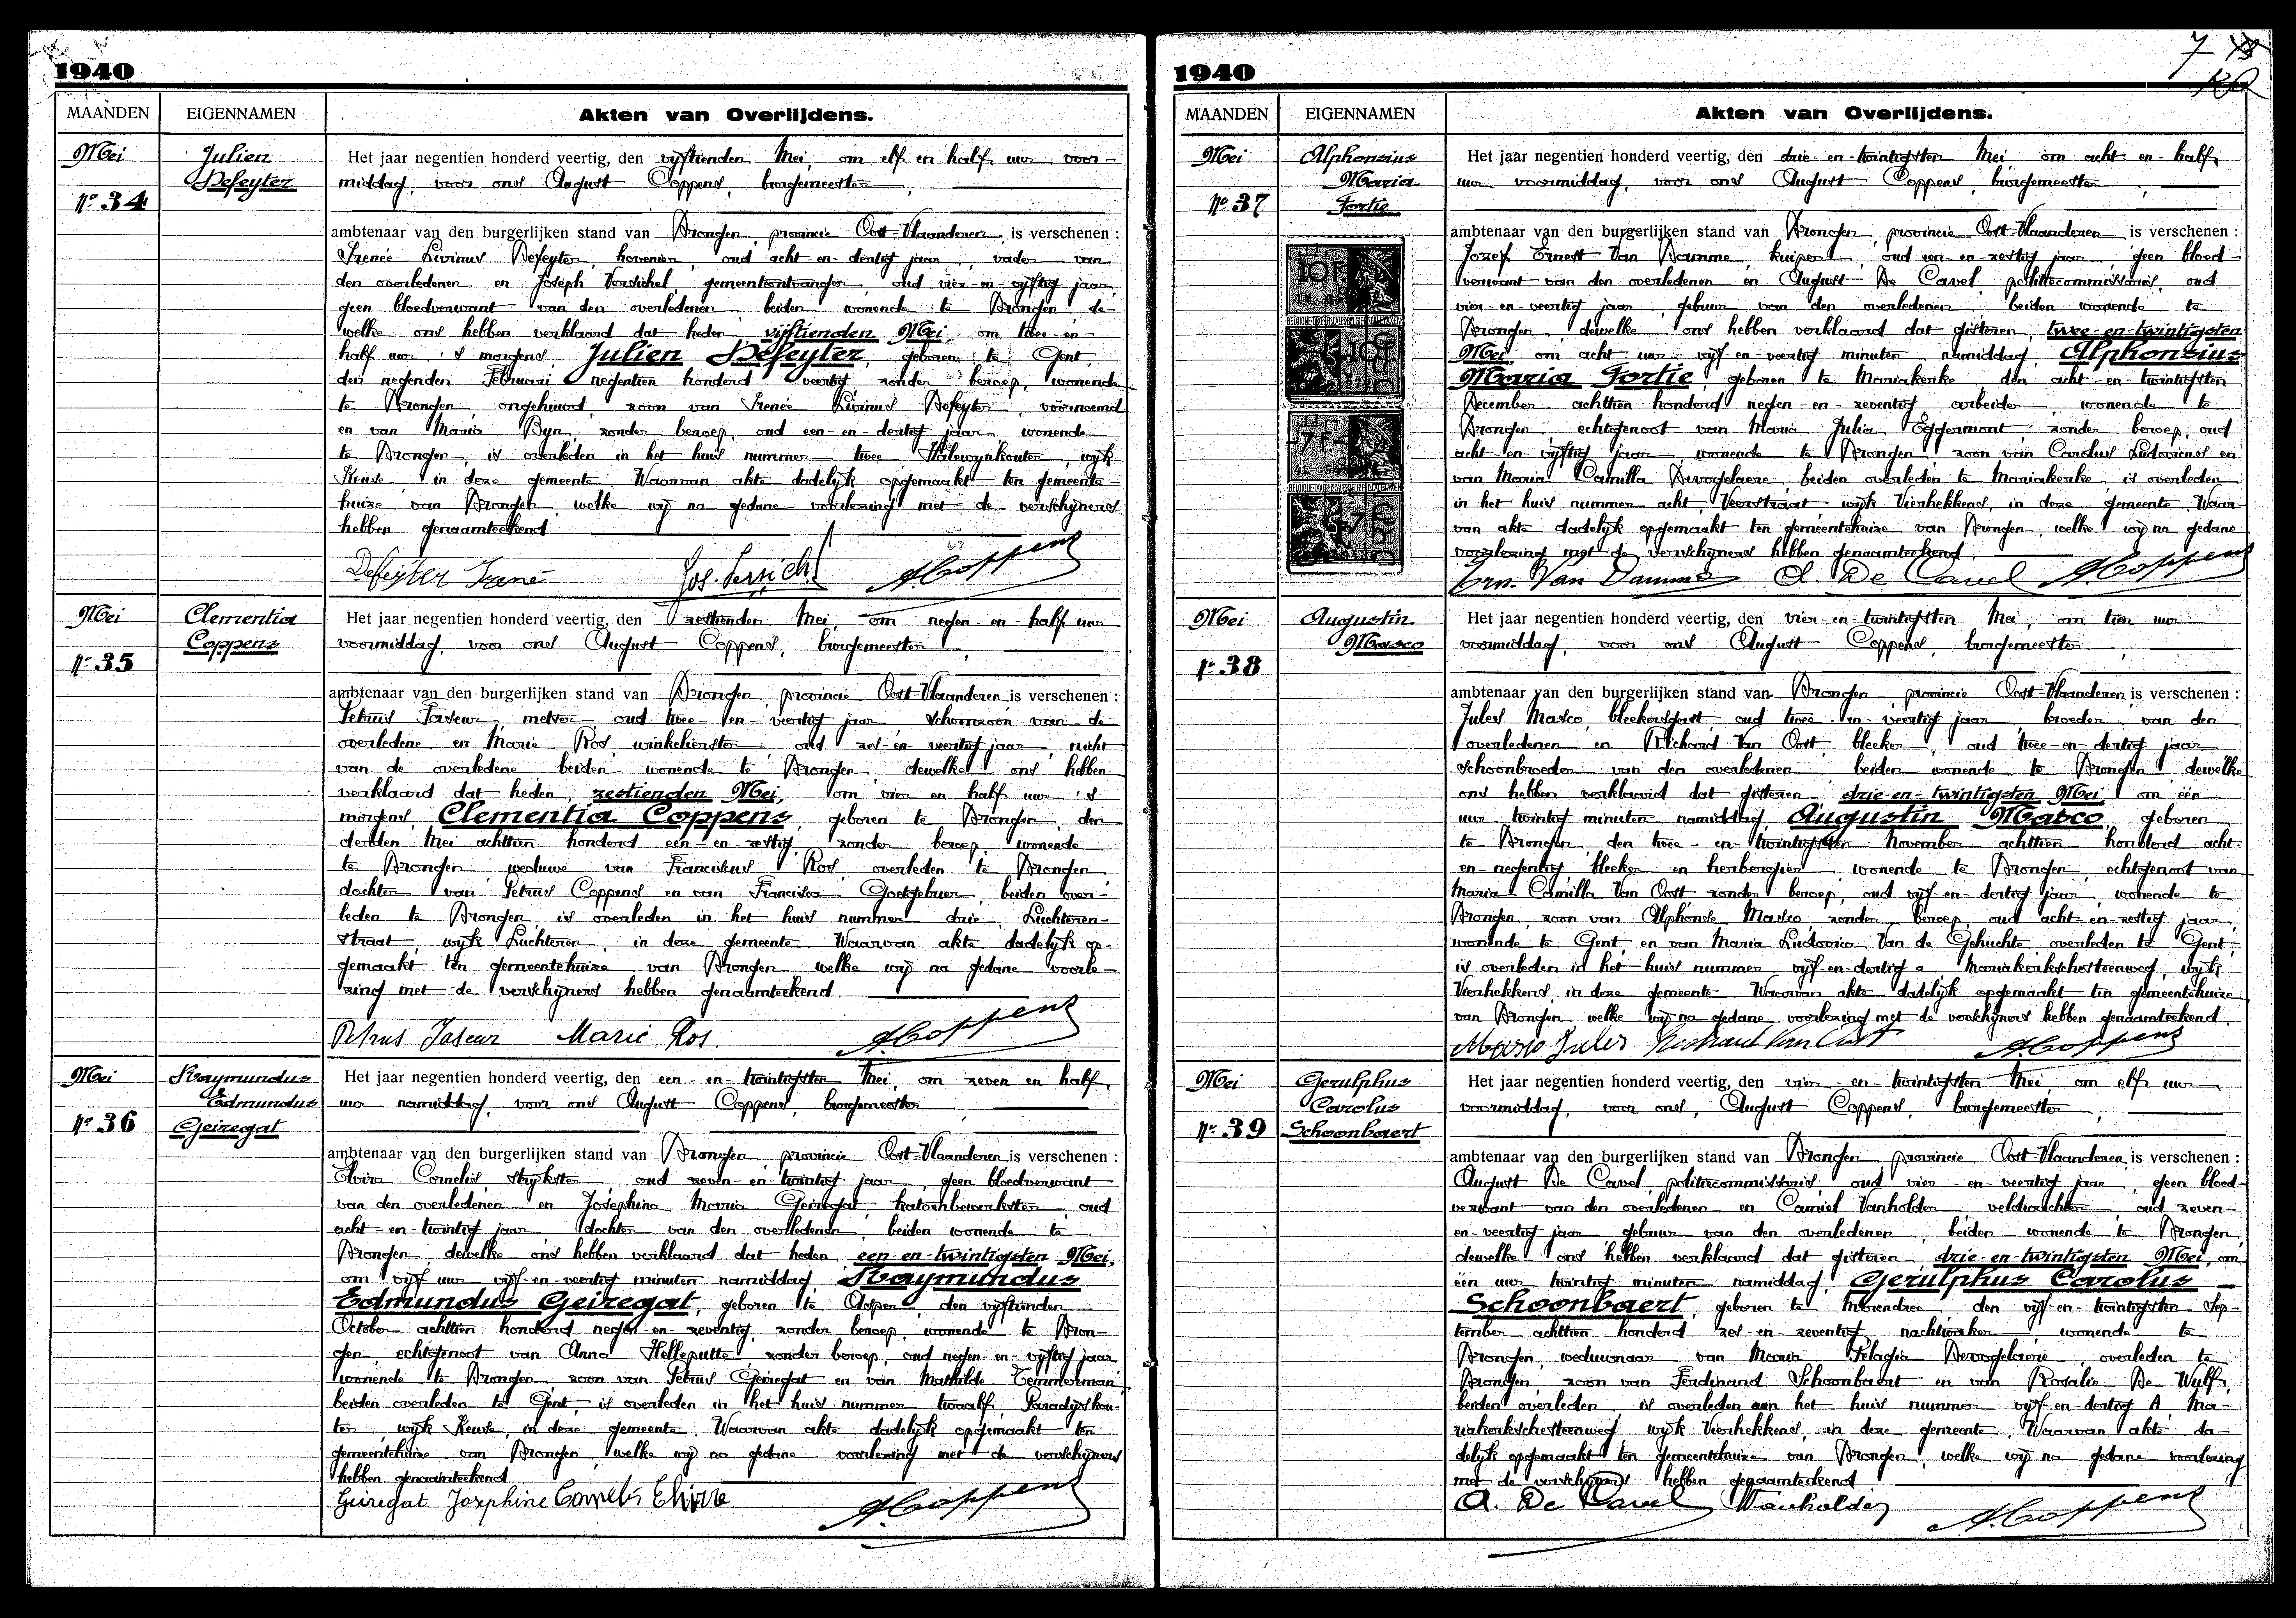 1940
MAANDEN
EIGENNAMEN
Akten van Overlijdens.
Mei
Julien
Defeyter
No 34
Het jaar negentien honderd veertig, den vijftienden Mei, om elf en half uur voor-
middag, voor ons August Coppens, burgemeester,
ambtenaar van den burgerlijken stand van Drongen, provincie Oost-Vlaanderen, is verschenen :
Irenée Livinus Defeyter, hovenier, oud acht-en-dertig jaar, vader van
den overledenen en Joseph Versichel, gemeenteontvanger, oud vier-en-vijftig jaar,
geen bloedverwant van den overledenen, beiden wonende te Drongen, de-
welke ons hebben verklaard dat heden, vijftienden Mei, om twee-en-
half uur 's morgens, Julien Defeyter, geboren te Gent,
den negenden Februari negentien honderd veertig, zonder beroep, wonende
te Drongen, ongehuwd, zoon van Irenée Livinus Defeyter, voornoemd
en van Maria Byn, zonder beroep, oud een-en-dertig jaar, wonende
te Drongen, is overleden in het huis nummer twee Halewynkouter, wijk
Keuze, in deze gemeente. Waarvan akte dadelijk opgemaakt ten gemeente-
huize van Drongen, welke wij na gedane voorlezing met de verschijners
hebben genaamteekend.
Defeyter Irené Jos. Versichel A. Coppens
Mei
Clementia
Coppens
No 35
Het jaar negentien honderd veertig, den zestienden Mei, om negen-en-half uur
voormiddag, voor ons August Coppens, burgemeester,
ambtenaar van den burgerlijken stand van Drongen, provincie Oost-Vlaanderen, is verschenen :
Petrus Taseur, metser, oud twee-en-veertig jaar, schoonzoon van de
overledene en Marie Ros, winkelierster, oud zes-en-veertig jaar, nicht
van de overledene, beiden wonende te Drongen, dewelke ons hebben
verklaard dat heden, zestienden Mei, om vier en half uur 's
morgens, Clementia Coppens, geboren te Drongen, den
derden Mei achttien honderd een-en-zestig, zonder beroep, wonende
te Drongen, weduwe van Franciscus Ros, overleden te Drongen,
dochter van Petrus Coppens en van Francisca Goetgebuer, beiden over-
leden te Drongen, is overleden in het huis nummer drie, Luchteren-
straat, wijk Luchteren, in deze gemeente. Waarvan akte dadelijk op-
gemaakt ten gemeentehuize van Drongen, welke wij na gedane voorle-
zing met de verschijners hebben genaamteekend.
Petrus Taseur Marie Ros. A. Coppens
Mei
Raymundus
Edmundus
Geiregat
No 36
Het jaar negentien honderd veertig, den een-en-twintigsten Mei, om zeven en half
uur namiddag, voor ons August Coppens, burgemeester,
ambtenaar van den burgerlijken stand van Drongen, provincie Oost-Vlaanderen, is verschenen :
Elvira Cornelis, strijkster, oud zeven-en-twintig jaar, geen bloedverwant
van den overledenen en Josephina Maria Geiregat, katoenbewerkster, oud
acht-en-twintig jaar, dochter van den overledenen, beiden wonende te
Drongen, dewelke ons hebben verklaard dat heden, een-en-twintigsten Mei,
om vijf uur vijf-en-veertig minuten namiddag, Raymundus
Edmundus Geiregat, geboren te Asper, den vijftienden
October achttien honderd negen-en-zeventig, zonder beroep, wonende te Dron-
gen, echtgenoot van Anna Helleputte, zonder beroep, oud negen-en-vijftig jaar
wonende te Drongen, zoon van Petrus Geiregat en van Mathilde Temmerman,
beiden overleden te Gent, is overleden in het huis nummer twaalf, Paradijskou-
ter, wijk Keuze, in deze gemeente. Waarvan akte dadelijk opgemaakt ten
gemeentehuize van Drongen, welke wij na gedane voorlezing met de verschijners
hebben genaamteekend.
Geiregat Josephine Cornelis Elvire A. Coppens
7
1940
MAANDEN
EIGENNAMEN
Akten van Overlijdens.
Mei
Alphonsius
Maria
Fortie
No 37
Het jaar negentien honderd veertig, den drie-en-twintigsten Mei, om acht-en-half
uur voormiddag, voor ons August Coppens, burgemeester,
ambtenaar van den burgerlijken stand van Drongen, provincie Oost-Vlaanderen, is verschenen :
Jozef Ernest Van Damme, kuiper, oud een-en-zestig jaar, geen bloed-
verwant van den overledenen en August De Cavel, politiecommissaris, oud
vier-en-veertig jaar, gebuur van den overledenen, beiden wonende te
Drongen, dewelke ons hebben verklaard dat gisteren, twee-en-twintigsten
Mei, om acht uur vijf-en-veertig minuten namiddag, Alphonsius
Maria Fortie, geboren te Mariakerke, den acht-en-twintigsten
December achttien honderd negen-en-zeventig, arbeider, wonende te
Drongen, echtgenoot van Maria Julia Eggermont, zonder beroep, oud
acht-en-vijftig jaar, wonende te Drongen, zoon van Carolus Ludovicus en
van Maria Camilla Devogelaere, beiden overleden te Mariakerke, is overleden
in het huis nummer acht, Veerstraat, wijk Vierhekkens, in deze gemeente. Waar-
van akte dadelijk opgemaakt ten gemeentehuize van Drongen, welke wij na gedane
voorlezing met de verschijners hebben genaamteekend.
Ern. Van Damme A. De Cavel A. Coppens
10 F
7 F
Mei
Augustin
Masco
No 38
Het jaar negentien honderd veertig, den vier-en-twintigsten Mei, om tien uur
voormiddag, voor ons August Coppens, burgemeester,
ambtenaar van den burgerlijken stand van Drongen, provincie Oost-Vlaanderen, is verschenen :
Jules Masco, bleekersgast, oud twee-en-veertig jaar, broeder van den
overledenen en Richard Van Oost, bleeker, oud twee-en-dertig jaar,
schoonbroeder van den overledenen, beiden wonende te Drongen, dewelke
ons hebben verklaard dat gisteren, drie-en-twintigsten Mei, om één
uur twintig minuten namiddag, Augustin Masco, geboren
te Drongen, den twee-en-twintigsten November achttien honderd acht-
en-negentig, bleeker en herbergier, wonende te Drongen, echtgenoot van
Maria Camilla Van Oost, zonder beroep, oud vijf-en-dertig jaar, wonende te
Drongen, zoon van Alphonse Masco, zonder beroep, oud acht-en-zestig jaar,
wonende te Gent, en van Maria Ludovica Van de Gehuchte, overleden te Gent,
is overleden in het huis nummer vijf-en-dertig a, Mariakerkschesteenweg, wijk
Vierhekkens, in deze gemeente. Waarvan akte dadelijk opgemaakt ten gemeentehuize
van Drongen, welke wij na gedane voorlezing met de verschijners hebben genaamteekend.
Masco Jules Richard Van Oost A. Coppens
Mei
Gerulphus
Carolus
Schoonbaert
No 39
Het jaar negentien honderd veertig, den vier-en-twintigsten Mei, om elf uur
voormiddag, voor ons, August Coppens, burgemeester,
ambtenaar van den burgerlijken stand van Drongen, provincie Oost-Vlaanderen, is verschenen :
August De Cavel, politiecommissaris, oud vier-en-veertig jaar, geen bloed-
verwant van den overledenen en Camiel Vanholder, veldwachter, oud zeven-
en-veertig jaar, gebuur van den overledenen, beiden wonende te Drongen,
dewelke ons hebben verklaard dat gisteren, drie-en-twintigsten Mei, om
één uur twintig minuten namiddag, Gerulphus Carolus
Schoonbaert, geboren te Merendree, den vijf-en-twintigsten Sep-
tember achttien honderd zes-en-zeventig, nachtwaker, wonende te
Drongen, weduwnaar van Maria Pelagia Devogelaere, overleden te
Drongen, zoon van Ferdinand Schoonbaert en van Rosalie De Wulf,
beiden overleden, is overleden aan het huis nummer vijf-en-dertig A, Ma-
riakerkschesteenweg, wijk Vierhekkens, in deze gemeente. Waarvan akte da-
delijk opgemaakt ten gemeentehuize van Drongen, welke wij na gedane voorlezing
met de verschijners hebben genaamteekend.
A. De Cavel Vanholder A. Coppens